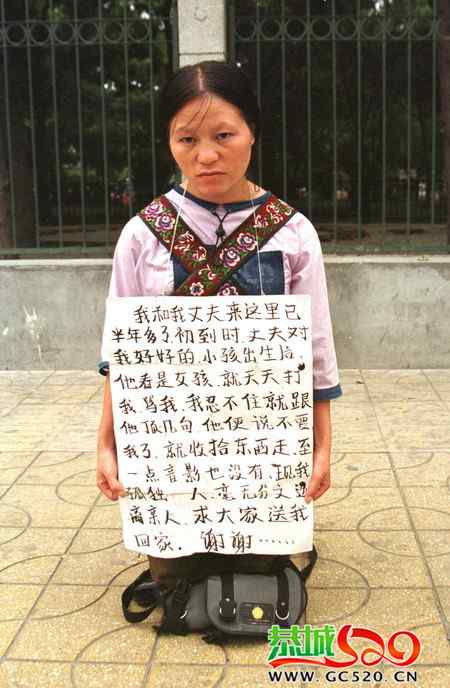 我和我丈夫来这里已
半年多了初到时、丈夫对
我好好的、小孩出生后、
他看是女孩、就天天打
我、骂我、我忍不住就跟
他顶几句他便说不要
我了、就收拾东西走、至
一点音影也没有、现我
孤独一人、毫无分文远
离亲人、求大家送我
回家. 谢谢······
恭城520
WWW.GC520.CN